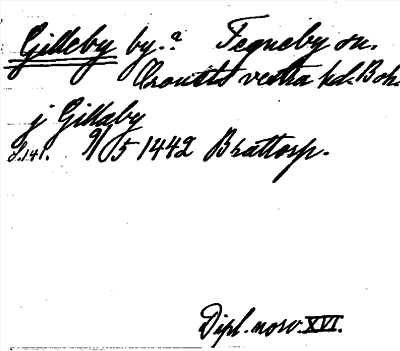 Gilleby by.a Tegneby sn.
Orousts vestra hd. Boh.
j Gillaby
s.141. 9/5 1442 Brattorp.
Dipl. norv. XVI.